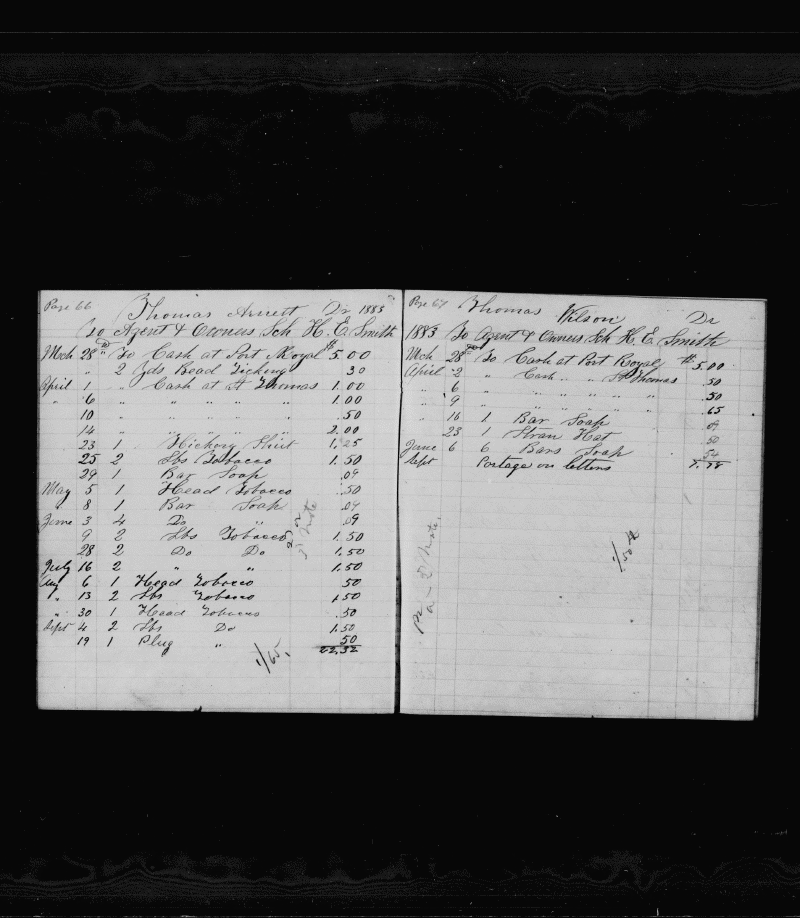 Page 66
Thomas Arnett Dr 1883
To Agent & Owners Sch. H. E. Smith
Mch 28 To Cash at Port Royal $5.00
" 2 Yds Bead Ticking 30
April 1 " Cash at St Thomas 1.00
" 6 " " " " 1.00
10 " " " " .50
14 " " " " 2.00
23 1 Hickory Shirt 1.25
25 2 Lbs Tobacco 1.50
29 1 Bar Soap .09
May 5 1 Head Tobacco .50
" 8 1 Bar Soap .09
June 3 4 Do " .09
9 2 Lbs Tobacco 1.50
28 2 Do Do 1.50
July 16 2 " " 1.50
Aug 6 1 Head Tobacco 50
" 13 2 Lbs Tobacco 1.50
" 30 1 Head Tobacco .50
Sept 4 2 Lbs Do 1.50
19 1 Plug " 50
22.32
1/65.
Page 67
Thomas Wilson Dr
1883 To Agent & Owners Sch H. E. Smith
Mch 28 To Cash at Port Royal $5.00
April 2 " Cash " " St Thomas .50
" 6 " " " " .50
" 9 " " " " .65
" 16 1 Bar Soap .09
23 1 Straw Hat .50
June 6 6 Bars Soap .54
Sept Postage on letters
7.78
1/50